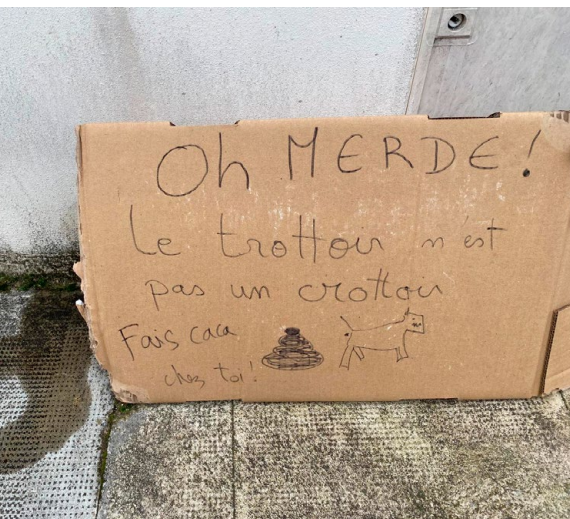 Oh MERDE!
Le trottoir n'est
pas un crottoir
Fais caca
chez toi!